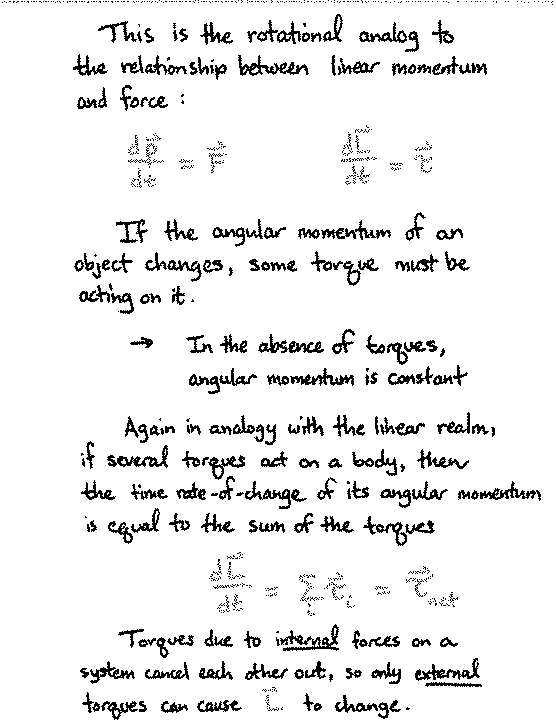 This is the rotational analog to
the relationship between linear momentum
and force :
dp⃗/dt = F⃗    dL⃗/dt = τ⃗
If the angular momentum of an
object changes, some torque must be
acting on it.
→ In the absence of torques,
angular momentum is constant
Again in analogy with the linear realm,
if several torques act on a body, then
the time rate-of-change of its angular momentum
is equal to the sum of the torques
dL⃗/dt = Σᵢ τ⃗ᵢ = τ⃗net
Torques due to internal forces on a
system cancel each other out, so only external
torques can cause L⃗ to change.